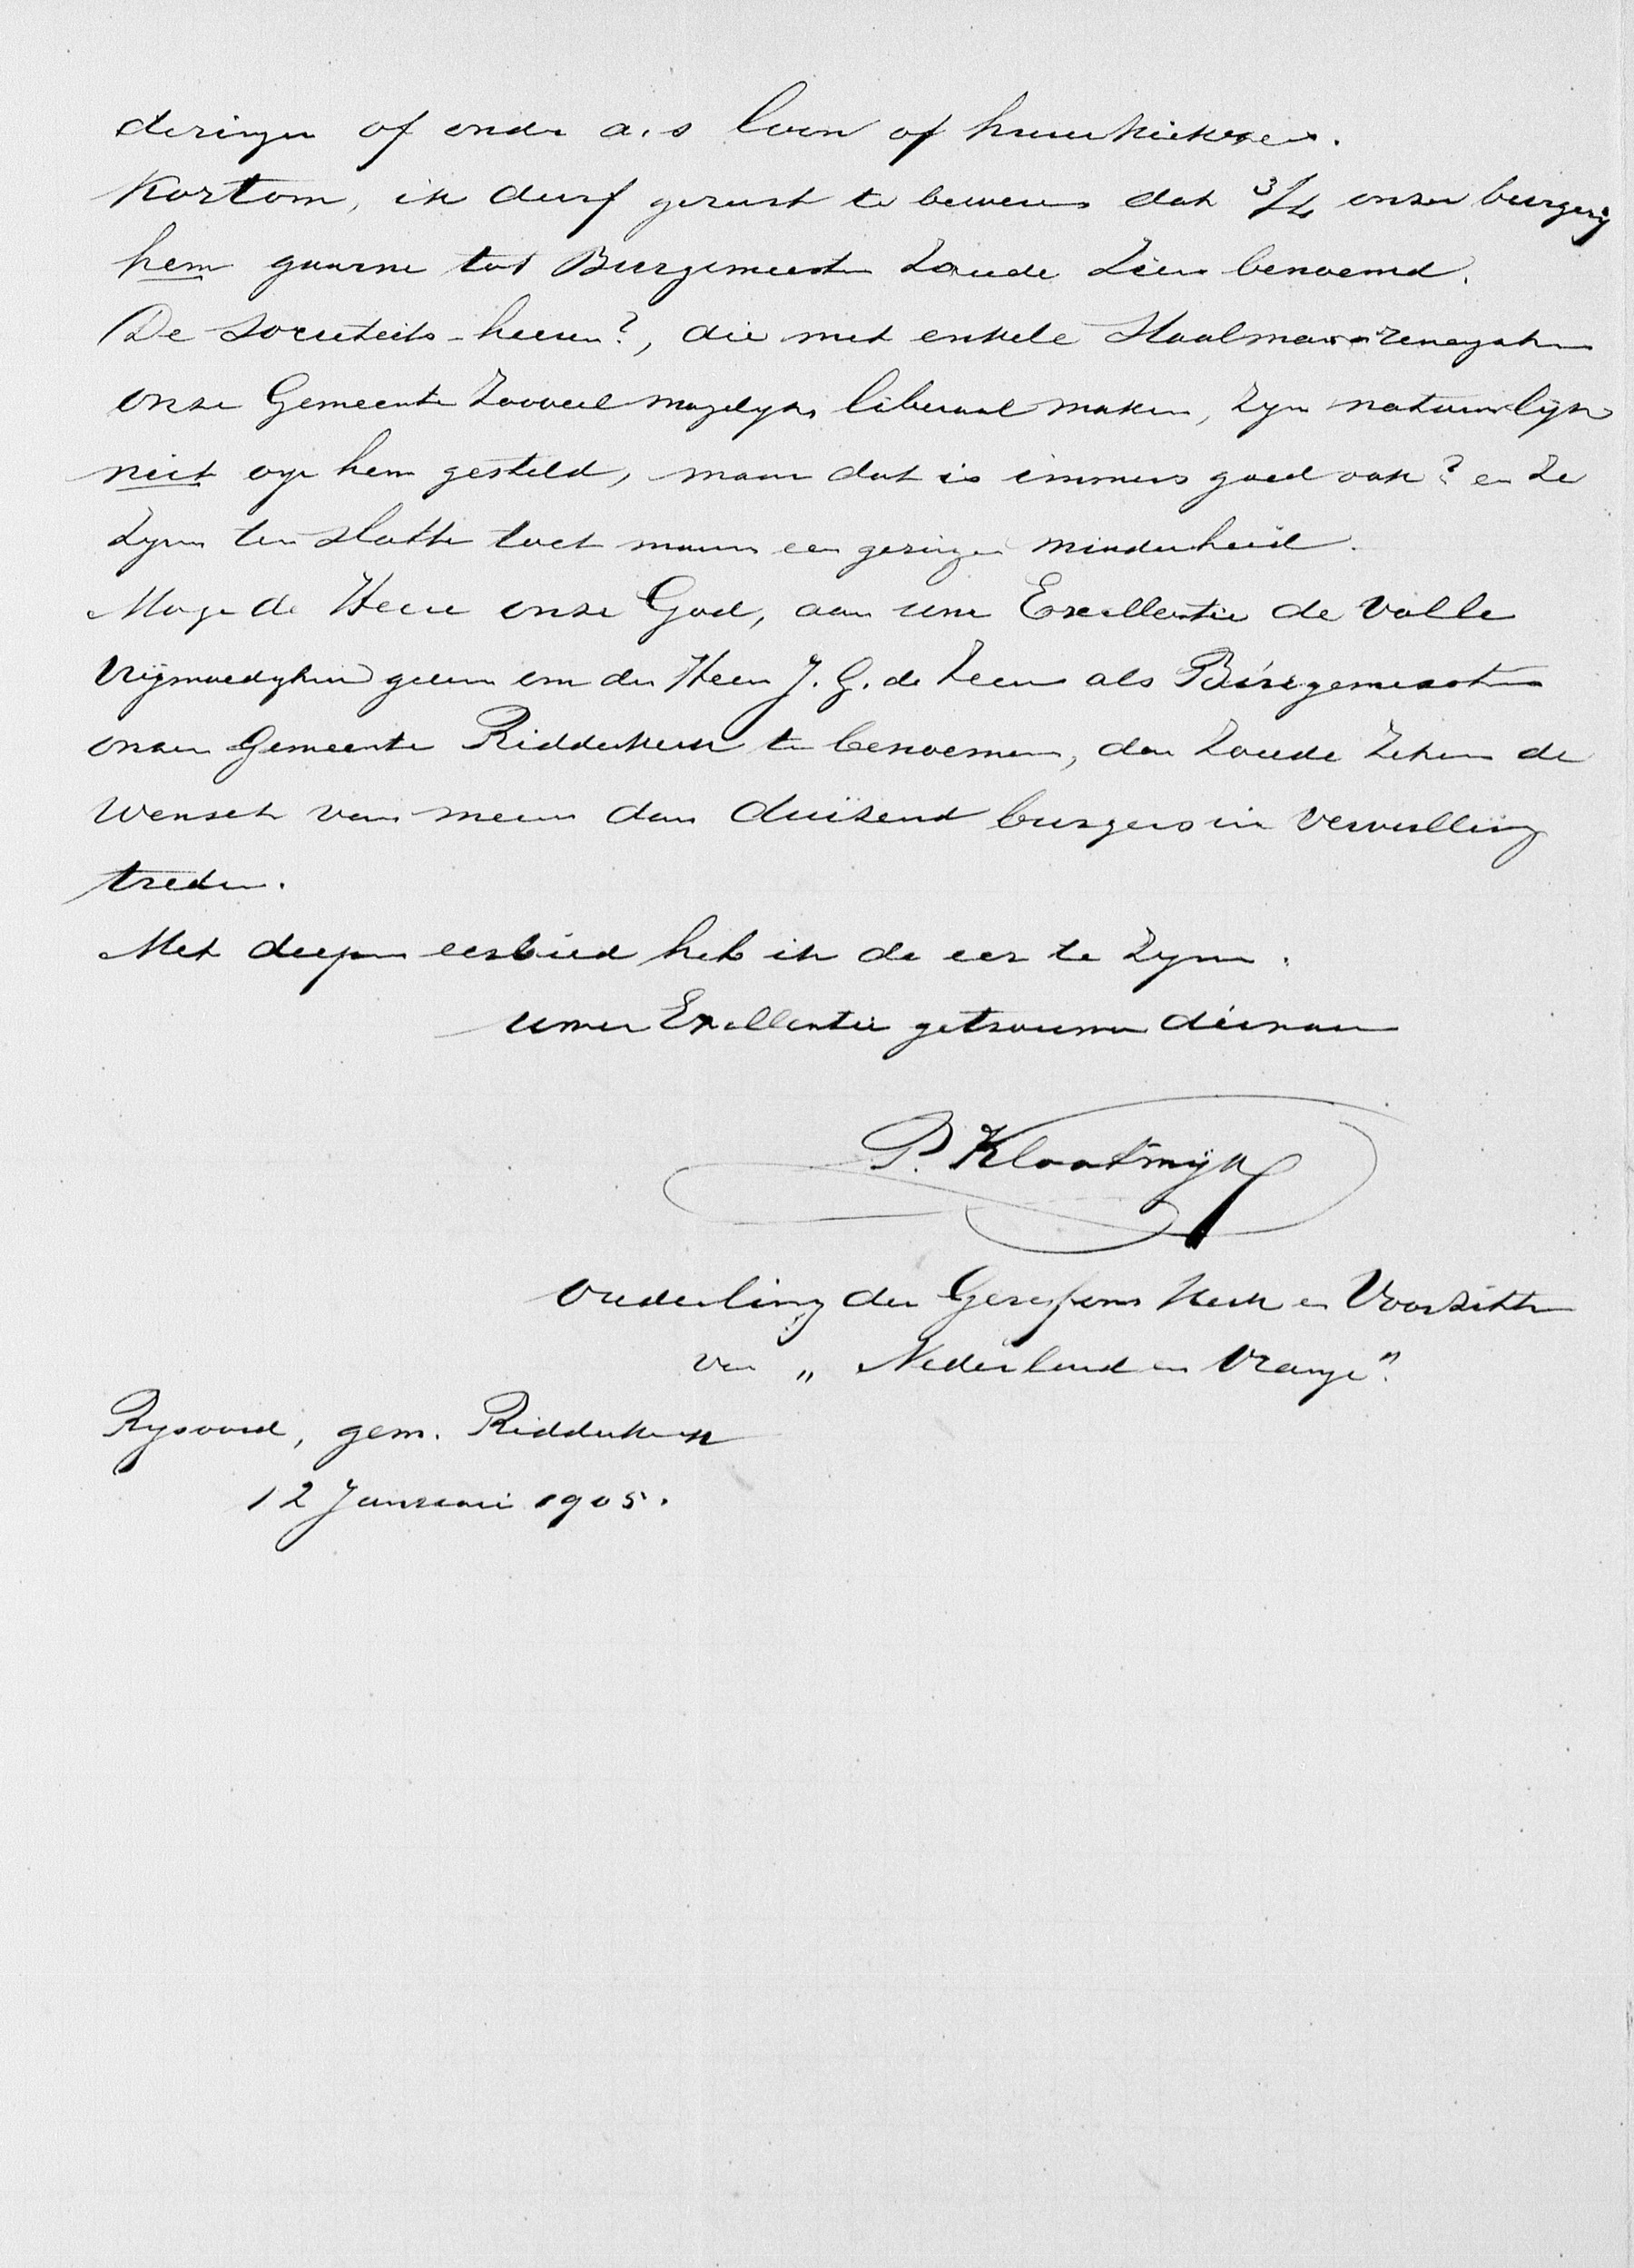 deringen of onder a.s loon of huurkiekers.
Kortom, ik durf gerust te beweren dat 3/4 onzer burgerij
hem gaarne tot Burgemeester zoude zien benoemd.
De Societeits-heeren?, die met enkele
onze Gemeente zooveel mogelyk liberaal maken, zyn natuurlijk
niet op hem gesteld, maar dat is immers goed ook? en ze
zyn ten slotte toch maar een geringe minderheid.
Moge de Heere onze God, aan uwe Excellentie de volle
vrijmoedigheid geven om den Heer J. G. de Zeeuw als Burgemeester
onzer Gemeente Ridderkerk te benoemen, dan zoude zeker de
wensch van meer dan duizend burgers in vervulling
treden.
Met diepen eerbied heb ik de eer te zyn.
uwer Exellentie getrouwen dienaar
P. Klootwijk
Ouderling der Gereform Kerk en Voorzitter
van „Nederland en Oranje".
Rysoord, gem. Ridderkerk
12 Januari 1905.